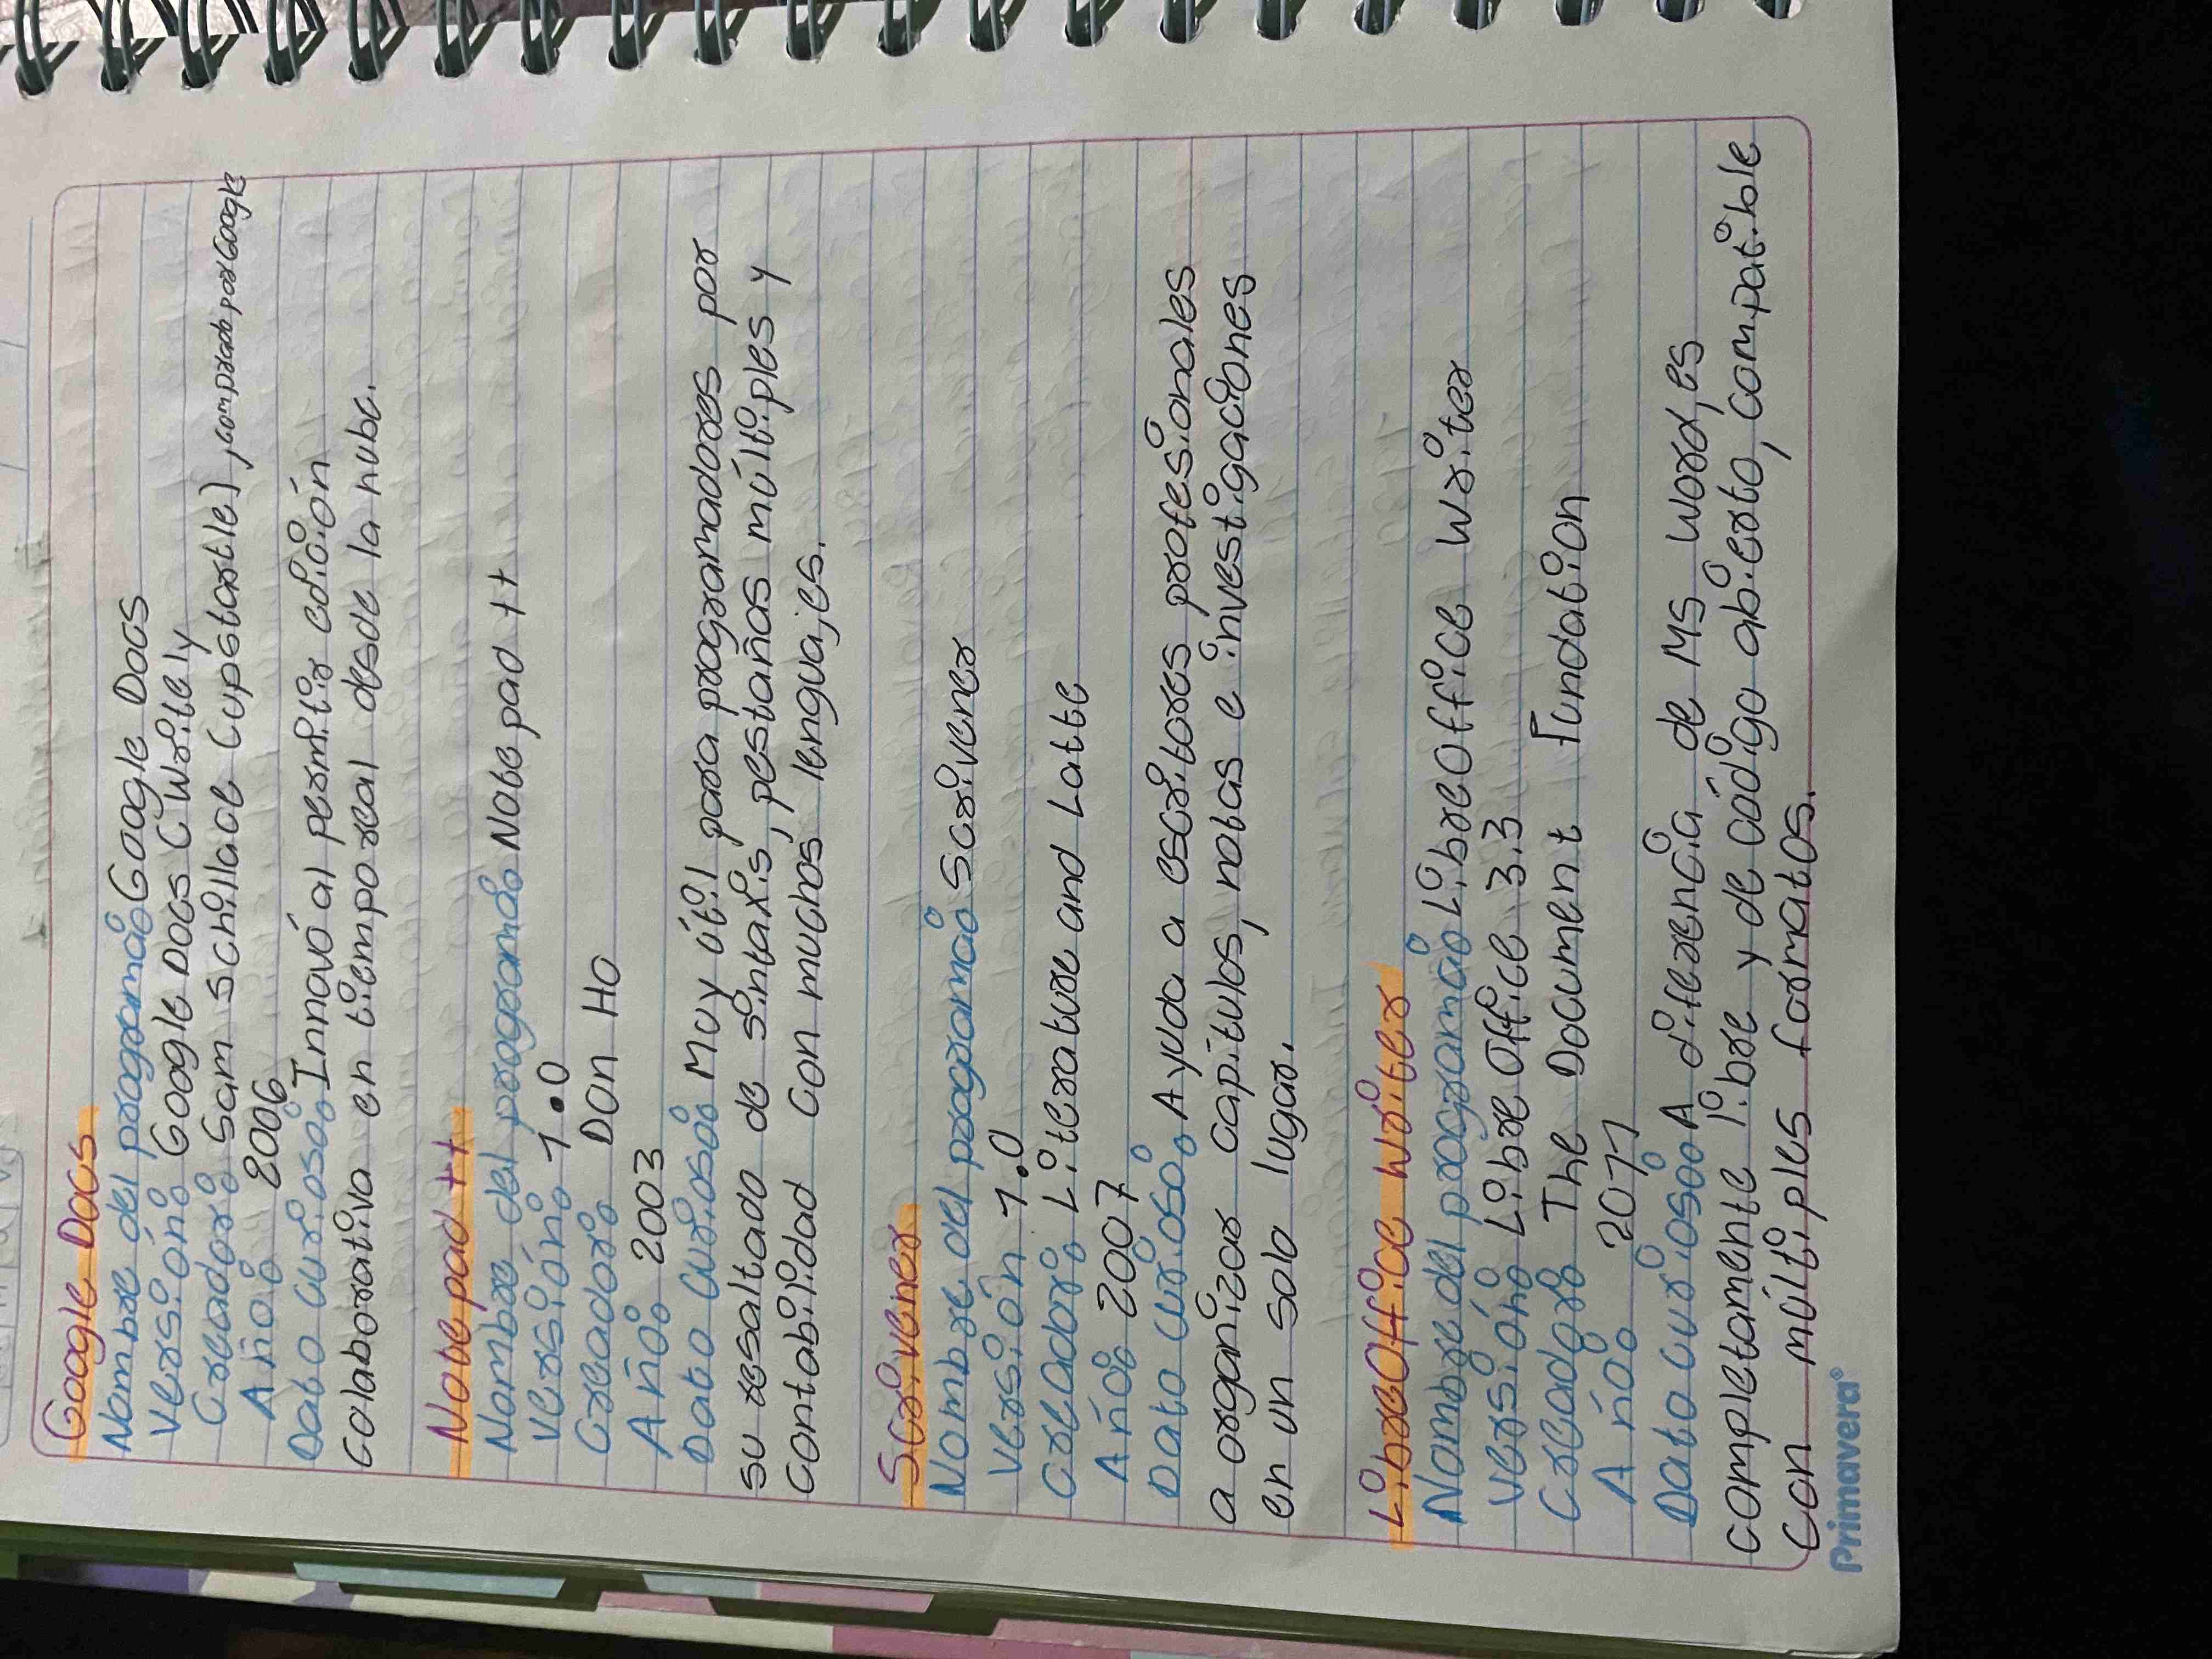 Google Docs
Nombre del programa: Google Docs
Versión: Google Docs (Writely
Creador: Sam Schillace (upstartle), comprado por Google
Año: 2006
Dato curioso: Innovó al permitir edición
colaborativa en tiempo real desde la nube.
Notepad ++
Nombre del programa: Notepad ++
Versión: 1.0
Creador: Don Ho
Año: 2003
Dato curioso: Muy útil para programadores por
su resaltado de sintaxis, pestañas múltiples y
contabilidad con muchos lenguajes.
Scrivener
Nombre del programa: Scrivener
Versión 1.0
Creador: Literature and Latte
Año: 2007
Dato curioso: Ayuda a escritores profesionales
a organizar capítulos, notas e investigaciones
en un solo lugar.
LibreOffice Writer
Nombre del programa: LibreOffice Writer
Versión: Libre Office 3.3
Creador: The Document Fundation
Año: 2011
Dato curioso: A diferencia de MS Word, es
completamente libre y de código abierto, compatible
con múltiples formatos.
Primavera®